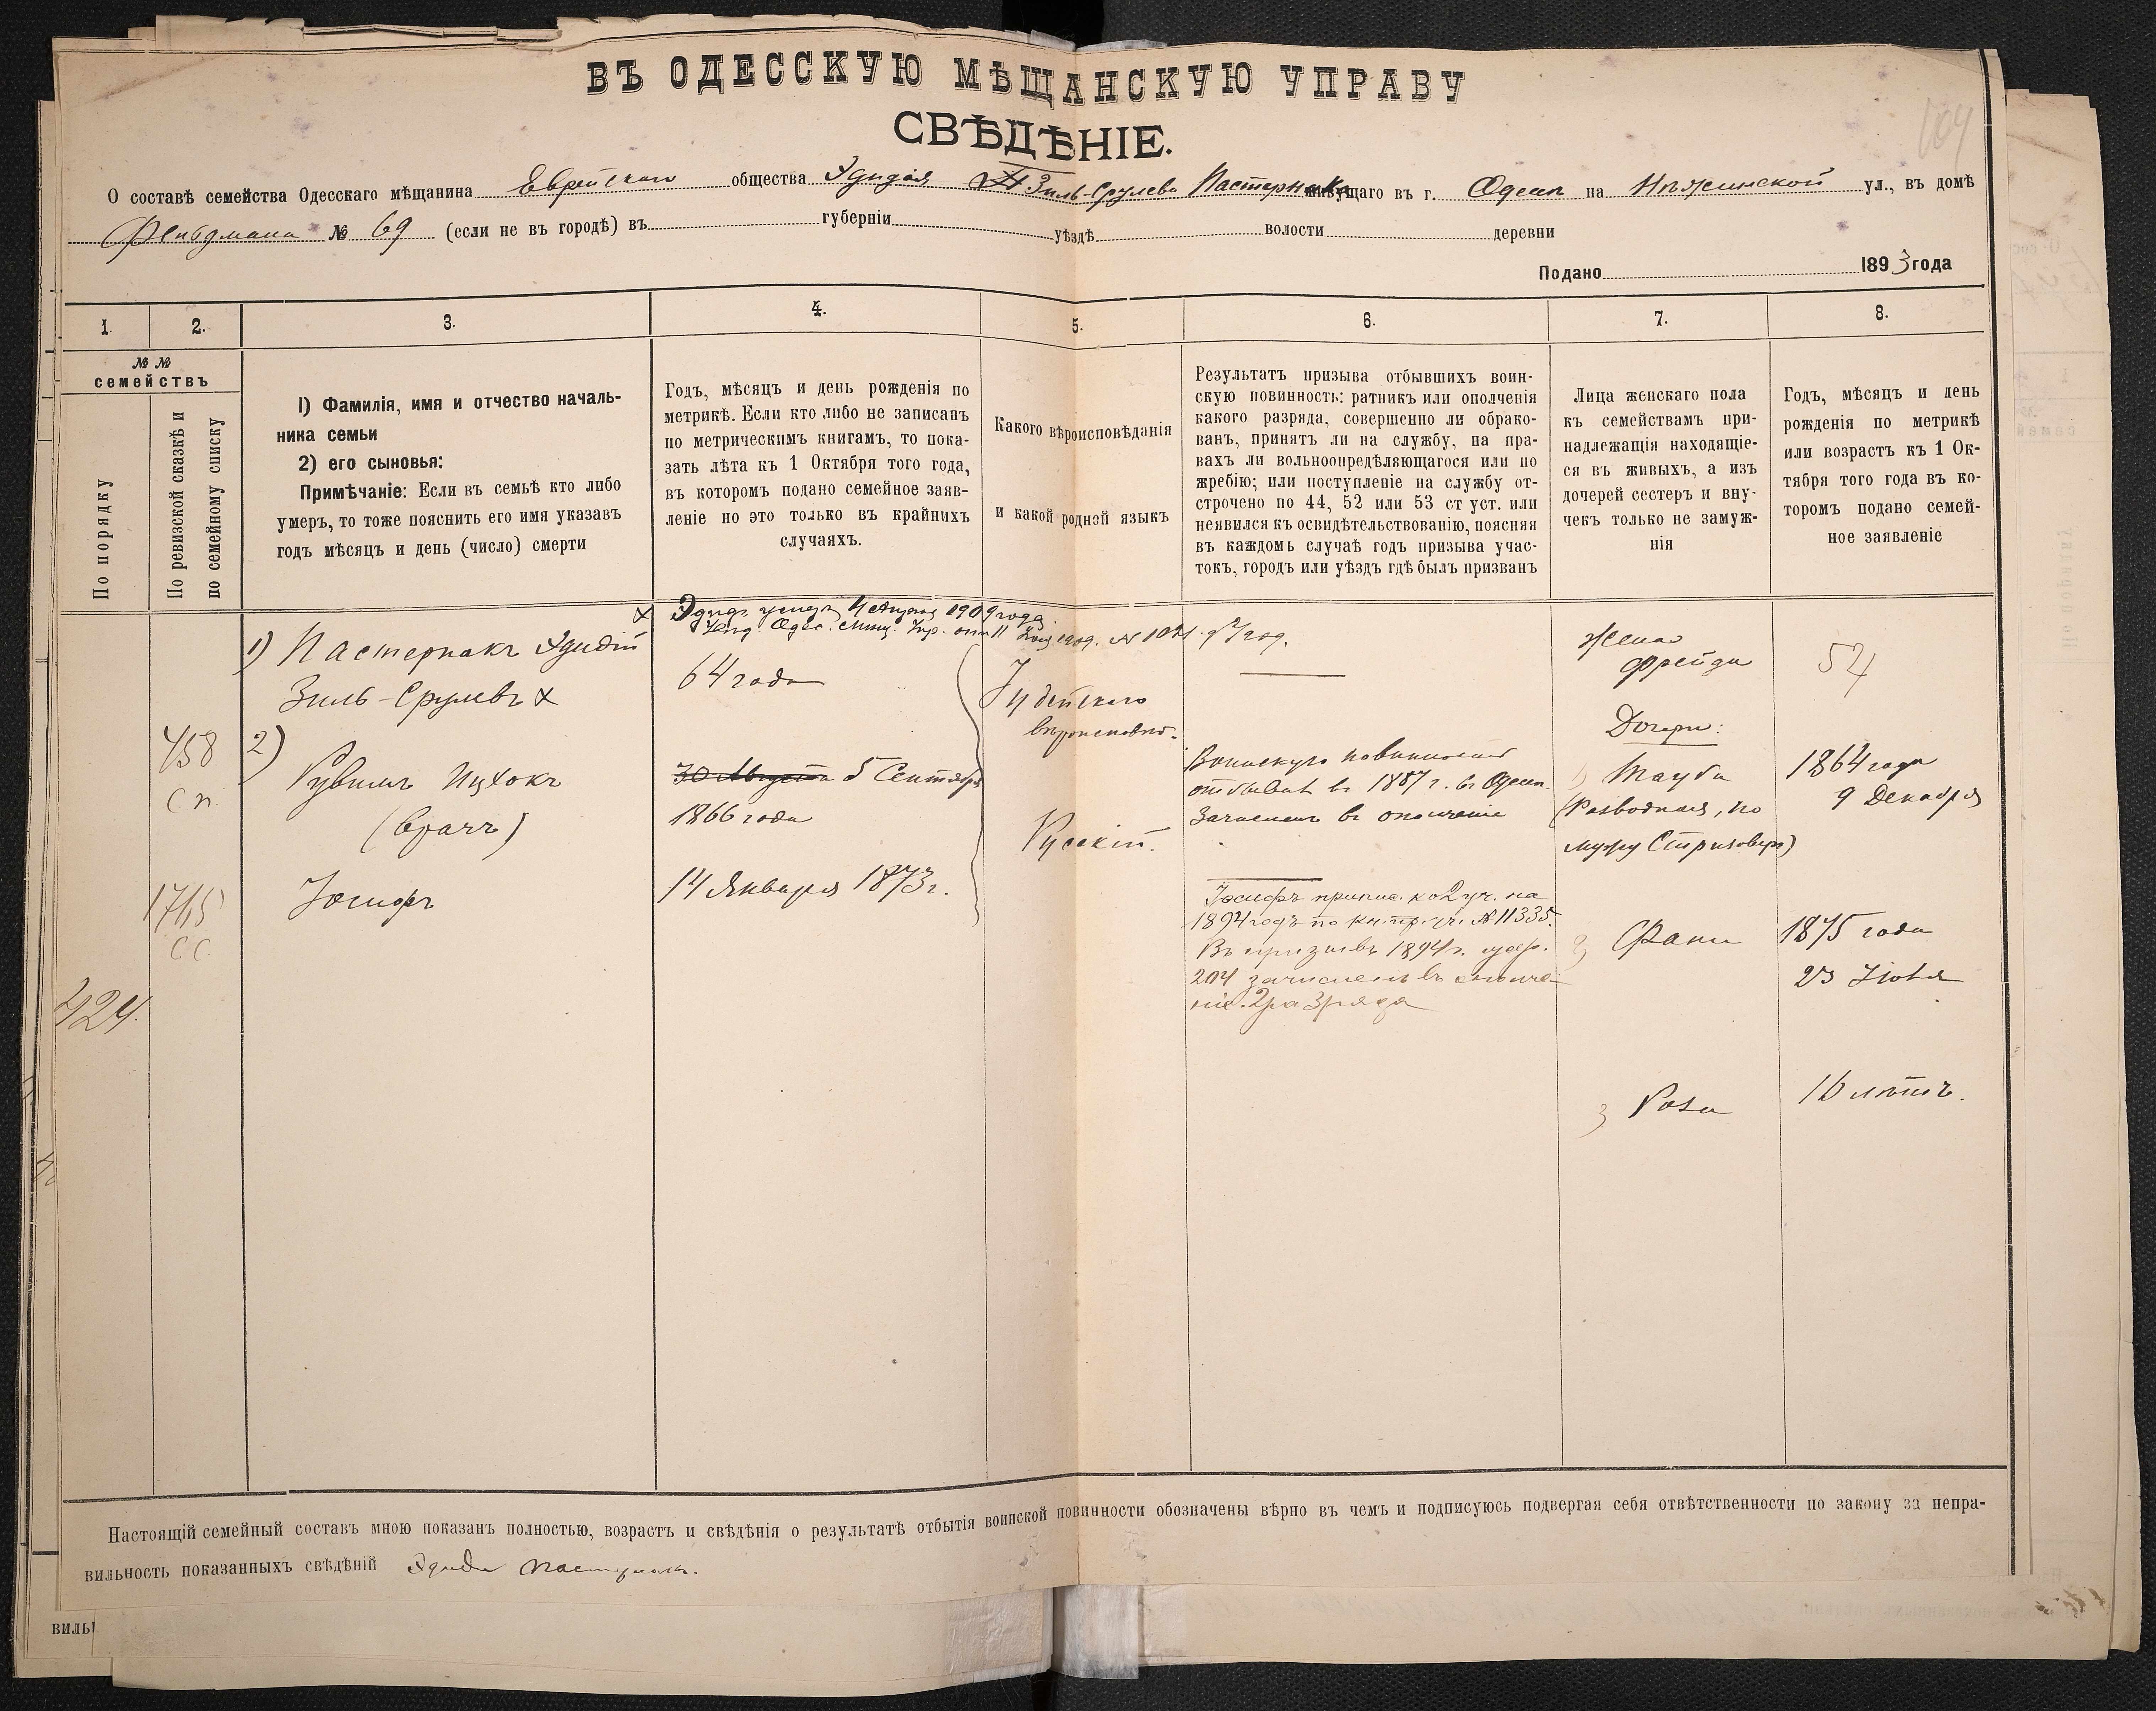 ВЪ ОДЕССКУЮ МѢЩАНСКУЮ УПРАВУ
СВѢДѢНІЕ.
104
О составѣ семейства Одесскаго мѣщанина Еврейскаго общества Эдидія Зиль-Срулева Пастернака живущаго въ г. Одессѣ на Нѣжинской ул., въ домѣ
Фельдмана № 69 (если не въ городѣ) въ губерніи уѣздѣ волости деревни
Подано 1893 года
1. 2. 3. 4. 5. 6. 7. 8.
№ №
семействъ
По порядку
По ревизской сказкѣ и
по семейному списку
I) Фамилія, имя и отчество началь-
ника семьи
2) его сыновья:
Примѣчаніе: Если въ семьѣ кто либо
умеръ, то тоже пояснить его имя указавъ
годъ мѣсяцъ и день (число) смерти
Годъ, мѣсяцъ и день рожденія по
метрикѣ. Если кто либо не записанъ
по метрическимъ книгамъ, то пока-
зать лѣта къ 1 Октября того года,
въ которомъ подано семейное заяв-
леніе но это только въ крайнихъ
случаяхъ.
Какого вѣроисповѣданія
и какой родной языкъ
Результатъ призыва отбывшихъ воин-
скую повинность: ратникъ или ополченія
какого разряда, совершенно ли обрако-
ванъ, принятъ ли на службу, на пра-
вахъ ли вольноопредѣляющагося или по
жребію; или поступленіе на службу от-
строчено по 44, 52 или 53 ст уст. или
неявился къ освидѣтельствованію, поясняя
въ каждомь случаѣ годъ призыва учас-
токъ, городъ или уѣздъ гдѣ былъ призванъ
Лица женскаго пола
къ семействамъ при-
надлежащія находящіе-
ся въ живыхъ, а изъ
дочерей сестеръ и вну-
чекъ только не замуж-
нія
Годъ, мѣсяцъ и день
рожденія по метрикѣ
или возрастъ къ 1 Ок-
тября того года въ ко-
торомъ подано семей-
ное заявленіе
424.
458
сп.
1765
СС.
1) Пастернакъ Эдидій
Зиль-Срулевъ х
2)
Рувинъ Ицхокъ
(врачъ)
Іосифъ
Эдидія умеръ 4 Апрѣля 1909 года.
Одес. Мѣщ. Упр. 1909. №
64 года
30 Августа 5 Сентября
1866 года
14 Января 1873 г.
Іудейскаго
вѣроисповѣд.
Русскій.
Воинскую повинность
отбывалъ въ 1887 г. въ Одессѣ.
Зачисленъ въ ополченіе
Іосифъ припис. ко 2 уч. на
1894 годъ по кн. пр. уч. № 11335.
Въ призывъ 1894 г. жер.
204 зачисленъ въ ополче-
ніе 2 разряда
Жена
Фрейда
Дочери:
1) Тауба
(Разводная, по
мужу Стрижоверъ)
2) Фани
3 Роза
54
1864 года
9 Декабря
1875 года
23 Іюня
16 лѣтъ.
Настоящій семейный составъ мною показанъ полностью, возрастъ и свѣдѣнія о результатѣ отбытія воинской повинности обозначены вѣрно въ чемъ и подписуюсь подвергая себя отвѣтственности по закону за непра-
вильность показанныхъ свѣдѣній Эдидія Пастернакъ.
вилы